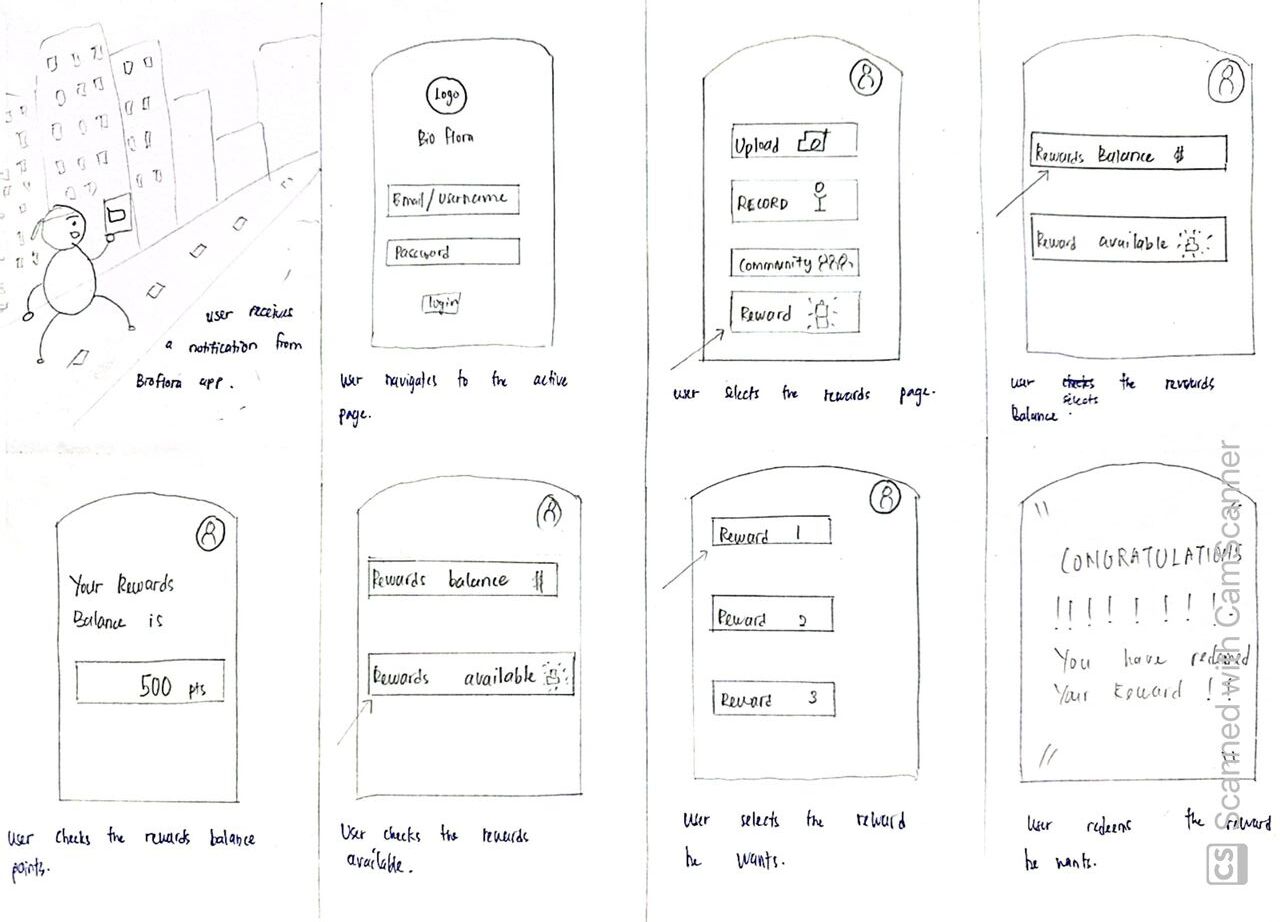 user receives
a notification from
Bioflora app.
Logo
Bio flora
Email/Username
Password
login
user navigates to the active
page.
Upload
RECORD
Community
Reward
user selects the rewards page.
Rewards Balance $
Reward available
user checks the rewards
selects
Balance.
Your Rewards
Balance is
500 pts
user checks the rewards balance
points.
Rewards balance $
Rewards available
User checks the rewards
available.
Reward 1
Reward 2
Reward 3
user selects the reward
he wants.
CONGRATULATIONS
!!!!!!!!
You have redeemed
Your Reward !!
User redeems the reward
he wants.
CS Scanned with CamScanner